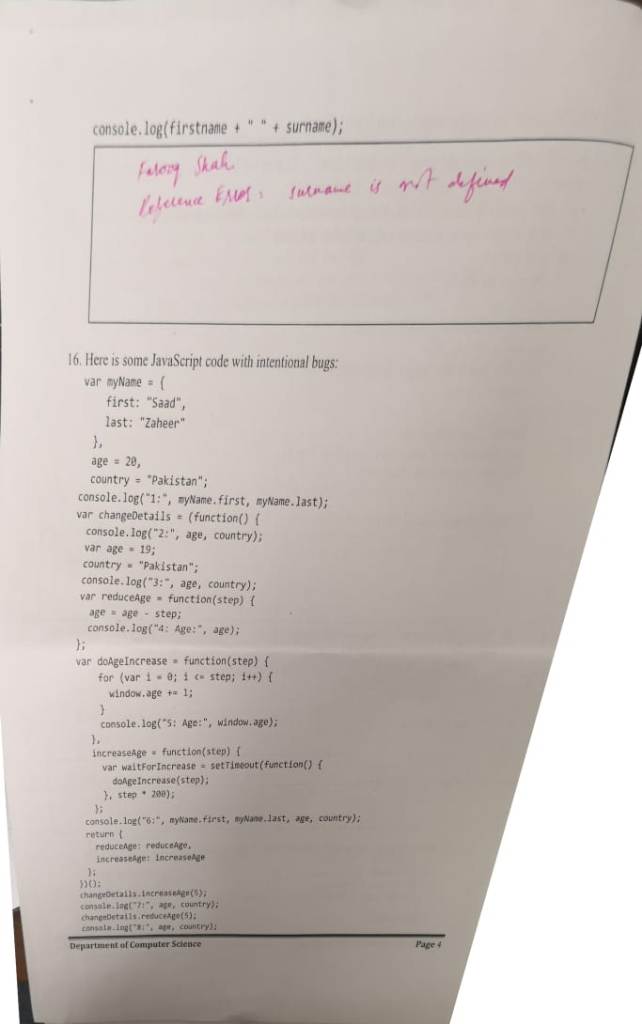 console.log(firstname + " " + surname);
Farooq Shah
Reference Error: surname is not defined
16. Here is some JavaScript code with intentional bugs:
var myName = {
first: "Saad",
last: "Zaheer"
},
age = 20,
country = "Pakistan";
console.log("1:", myName.first, myName.last);
var changeDetails = (function() {
console.log("2:", age, country);
var age = 19;
country = "Pakistan";
console.log("3:", age, country);
var reduceAge = function(step) {
age = age - step;
console.log("4: Age:", age);
};
var doAgeIncrease = function(step) {
for (var i = 0; i <= step; i++) {
window.age += 1;
}
console.log("5: Age:", window.age);
},
increaseAge = function(step) {
var waitForIncrease = setTimeout(function() {
doAgeIncrease(step);
}, step * 200);
};
console.log("6:", myName.first, myName.last, age, country);
return {
reduceAge: reduceAge,
increaseAge: increaseAge
};
})();
changeDetails.increaseAge(5);
console.log("7:", age, country);
changeDetails.reduceAge(5);
console.log("8:", age, country);
Department of Computer Science
Page 4